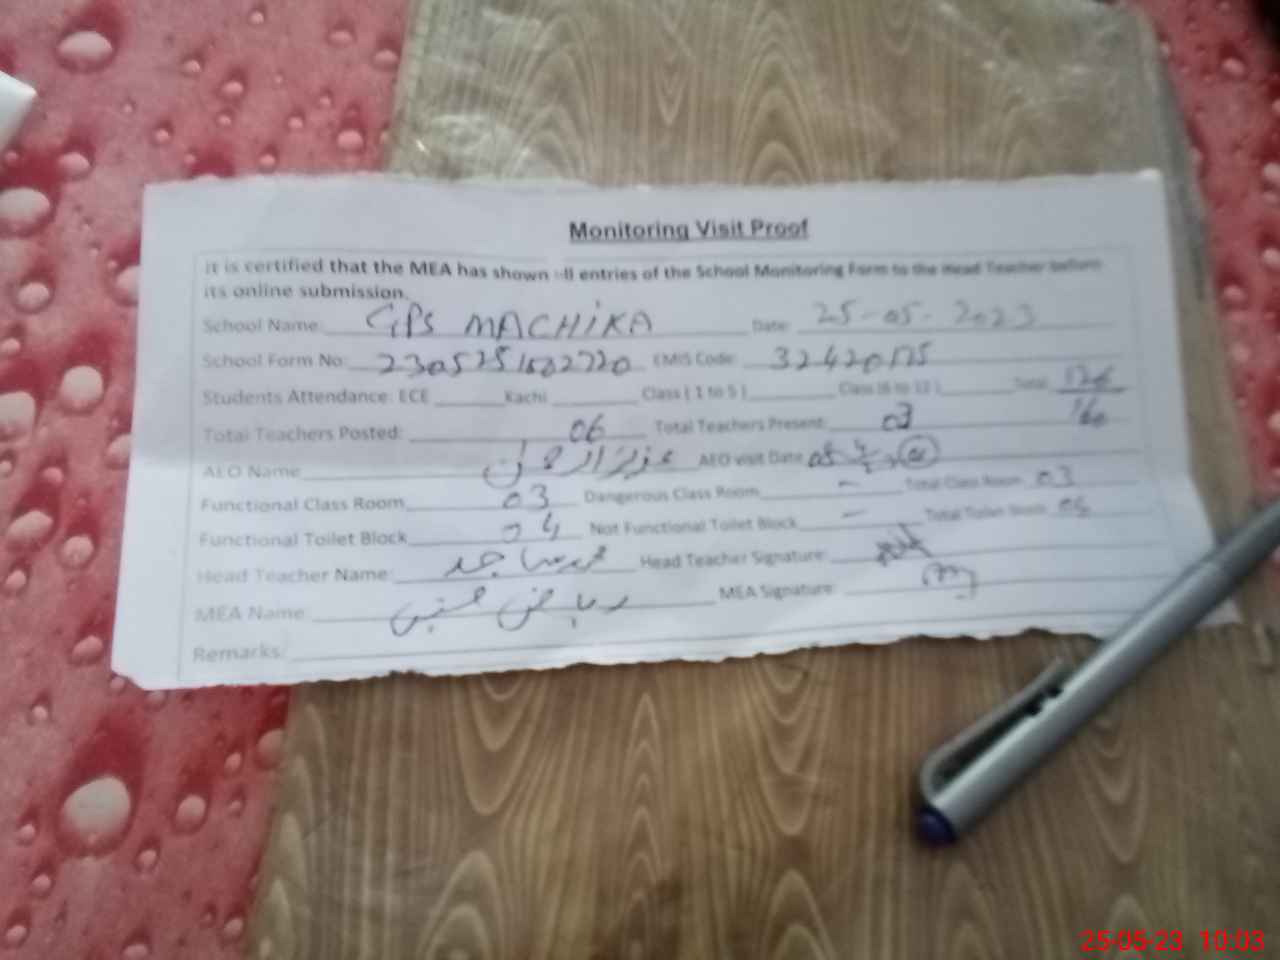 Monitoring Visit Proof
It is certified that the MEA has shown all entries of the School Monitoring Form to the Head Teacher before
its online submission.
School Name: GPS MACHIKA Date: 25-05-2023
School Form No: EMIS Code:
Students Attendance: ECE Kachi Class ( 1 to 5 ) Class (6 to 12 ) Total 126
160
Total Teachers Posted: 06 Total Teachers Present: 03
AEO Name عزیز الرحمٰن AEO visit Date
Functional Class Room 03 Dangerous Class Room - Total Class Room 03
Functional Toilet Block 04 Not Functional Toilet Block - Total Toilet Block 04
Head Teacher Name: محمد ساجد Head Teacher Signature:
MEA Name: ریاض حسین MEA Signature:
Remarks:
25-05-23 10:03